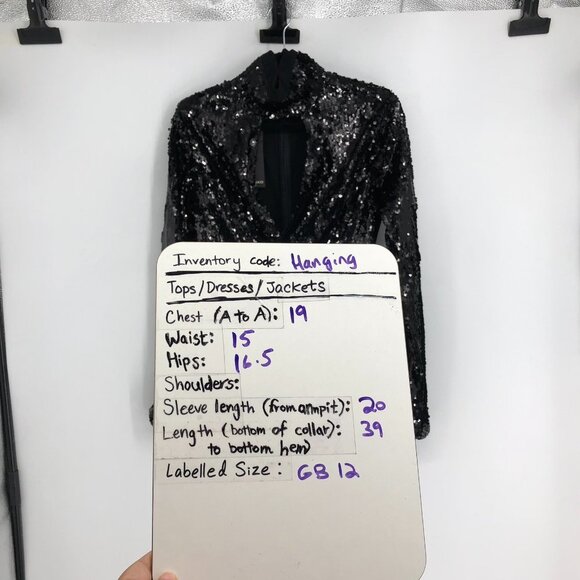 Inventory code: Hanging
Tops/Dresses/Jackets
Chest (A to A): 19
Waist: 15
Hips: 16.5
Shoulders:
Sleeve length (from armpit): 20
Length (bottom of collar): 39
to bottom hem)
Labelled Size: GB 12